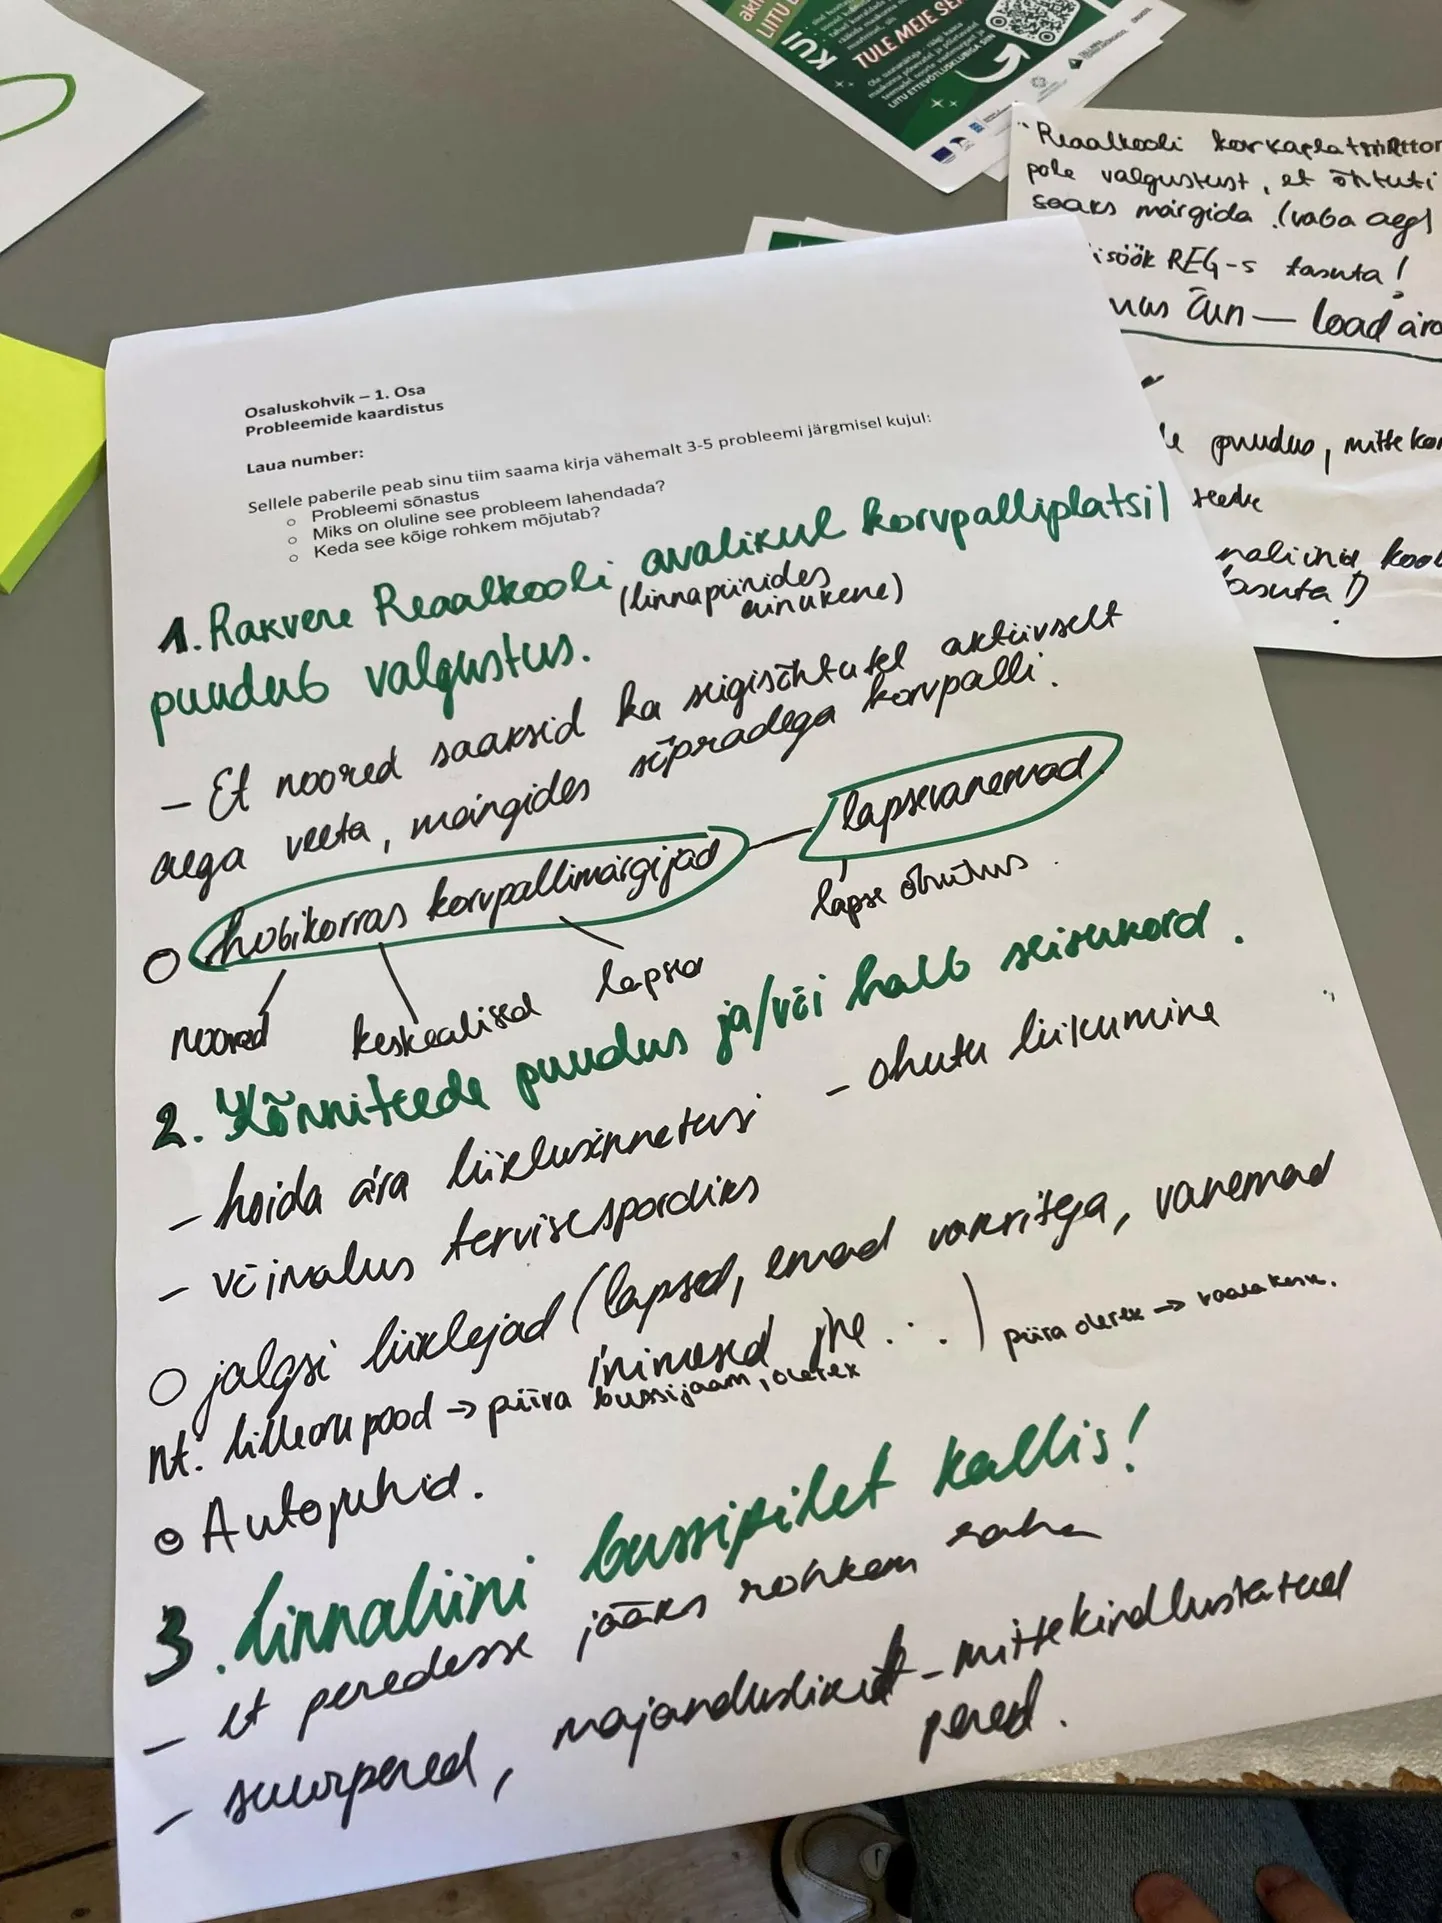 LIITU
KUI
TULE MEIE
LIITU ETTEVÕTLUSKLUBIGA SIIN
Reaalkooli
pole valgustust, et õhtuti
saaks mängida. (vaba aeg)
REG-s tasuta!
puudus, mitte
tasuta!)
Osaluskohvik – 1. Osa
Probleemide kaardistus
Laua number:
Sellele paberile peab sinu tiim saama kirja vähemalt 3-5 probleemi järgmisel kujul:
○ Probleemi sõnastus
○ Miks on oluline see probleem lahendada?
○ Keda see kõige rohkem mõjutab?
1. Rakvere Reaalkooli avalikul korvpalliplatsil
(linnapiirides
ainukene)
puudub valgustus.
– Et noored saaksid ka sügisõhtutel aktiivselt
aega veeta, mängides sõpradega korvpalli.
○ hobikorras korvpallimängijad — lapsevanemad
lapse ohutus.
noored keskealised lapsed
2. Kõnniteede puudus ja/või halb seisukord.
– hoida ära liiklusõnnetusi – ohutu liikumine
– võimalus tervisespordiks
○ jalgsi liiklejad (lapsed, emad vankritega, vanemad
inimesed jne...)
nt. Lilleoru pood → piira bussijaam, olerex
piira olerex → vaala kesk.
○ Autojuhid.
3. Linnaliini bussipilet kallis!
– et peredesse jääks rohkem raha
– suurpered, majanduslikult – mittekindlustatud
pered.